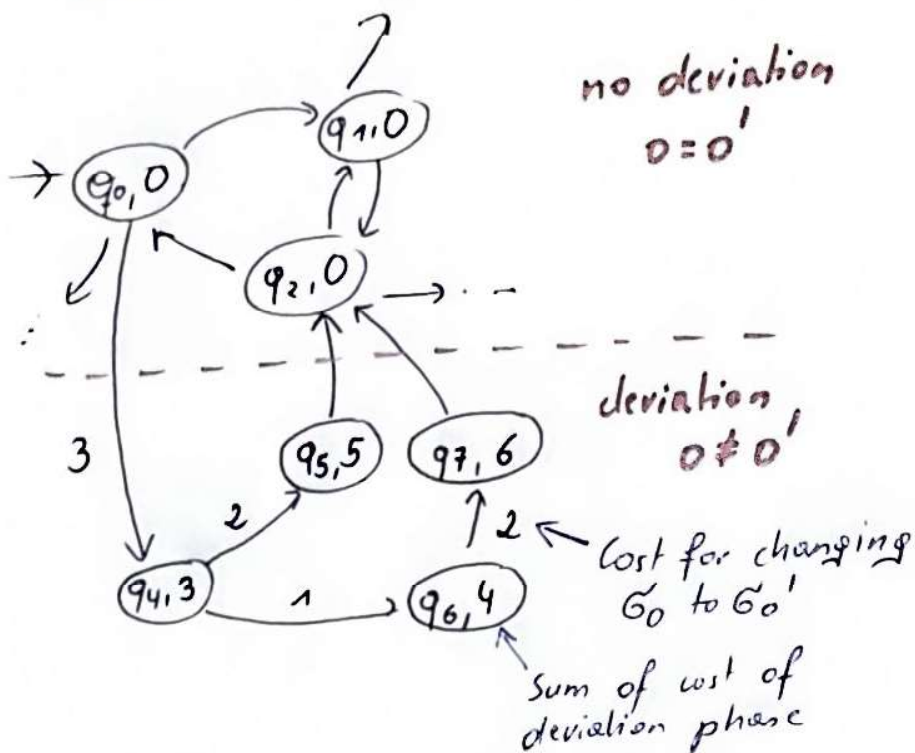 q1,0
no deviation
o = o'
q0,0
q2,0
. . .
deviation
o ≠ o'
3
q5,5
q7,6
2
2
Cost for changing
σo to σo'
q4,3
1
q6,4
Sum of cost of
deviation phase